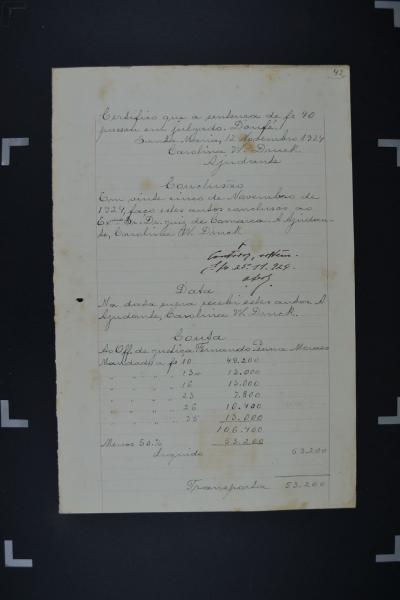 42
Certifico que a sentença de fs 40
passou em julgado. Dou fé.
Santa Maria, 12 Novembro 1924
Carolina W. Druck
Ajudante
Conclusão
Em vinte cinco de Novembro de
1924, faço estes autos conclusos ao
Exmo Sr. Dr. juiz de Comarca. A Ajudan-
te, Carolina W. Druck
25.11.924.
Data
Na data supra recebi estes autos. A
Ajudante, Carolina W. Druck.
Conta
Ao Off. de justiça Fernando Moraes
Mandado a fs 10 49.200
" " " " 13 13.000
" " " " 16 13.000
" " " " 23 7.800
" " " " 26 10.400
" " " " 35 13.000
106.400
Menos 50% 53.200
Liquido 53.200
Transporta 53.200